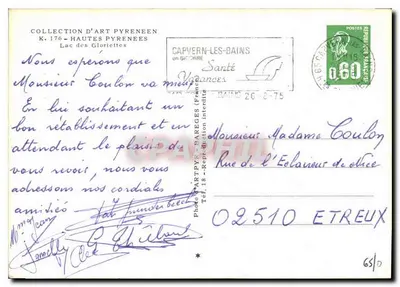 COLLECTION D'ART PYRENEEN
K. 176 - HAUTES PYRENEES
Lac des Gloriettes
Nous espérons que
Monsieur Coulon va mieux
En lui souhaitant un
bon rétablissement et en
attendant le plaisir de
vous revoir, nous vous
adressons nos cordiales
amitiés
CAPVERN-LES-BAINS
Santé
Vacances
26-8-75
REPUBLIQUE FRANCAISE
0,60
Monsieur Madame Coulon
Rue de l'Eclaireur de Nice
02510 ETREUX
65/D